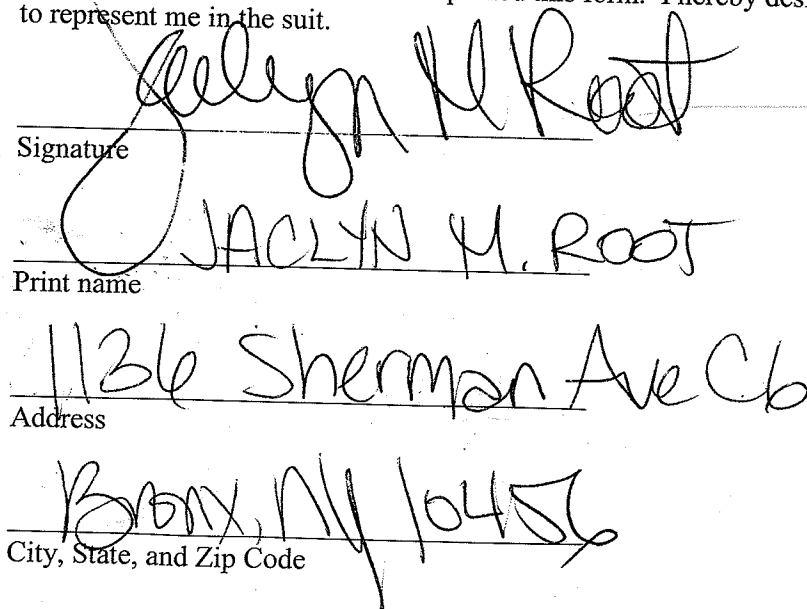 this form. I hereby
to represent me in the suit.
Jaclyn M Root
Signature
JACLYN M. ROOT
Print name
1136 Sherman Ave C6
Address
Bronx, NY 10456
City, State, and Zip Code